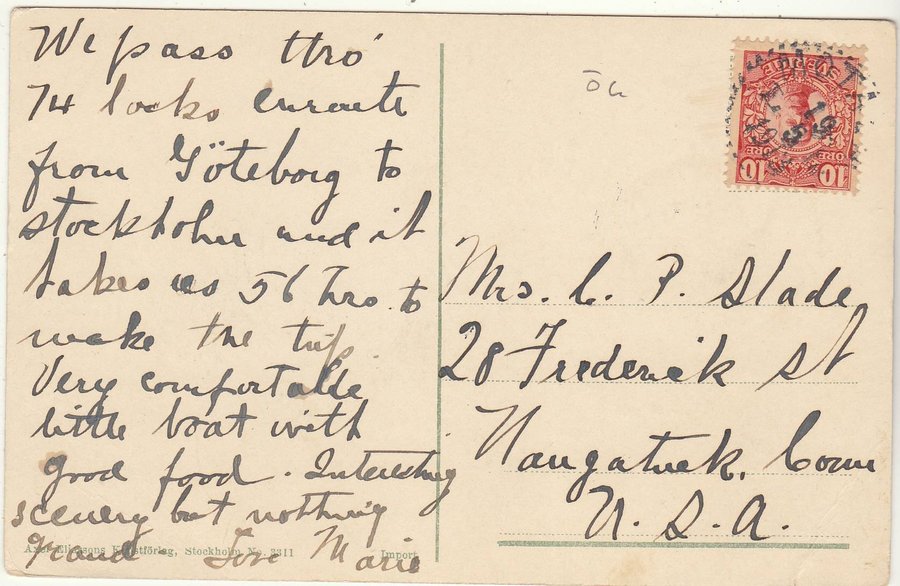 We pass thro'
74 locks enroute
from Göteborg to
stockholm and it
takes us 56 hrs. to
make the trip.
Very comfortable
little boat with
good food. Interesting
scenery but nothing
grand Love Marie
Axel Eliassons Konstförlag, Stockholm No. 3311 Import
SVERIGE
10 ÖRE 10
19 5
Mrs. C. P. Slade
28 Frederick st
Naugatuck, Conn
U. S. A.